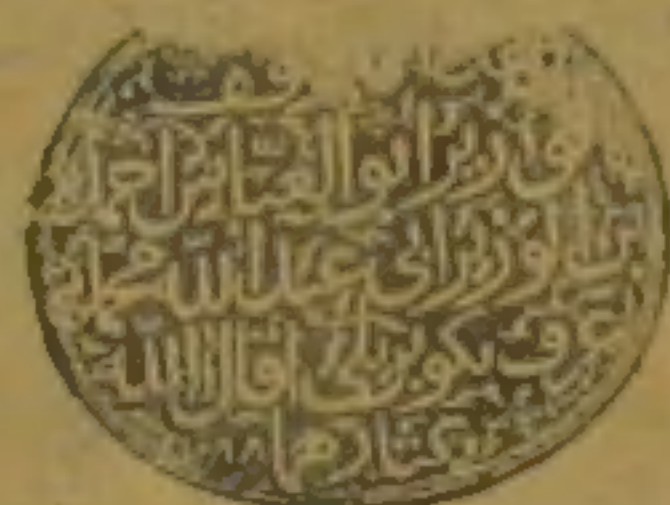 الوزير ابو العباس احمد
بن الوزير ابي عبد الله محمد
عرف بكوپريلي اقال الله
عثارهما ١٠٨٨